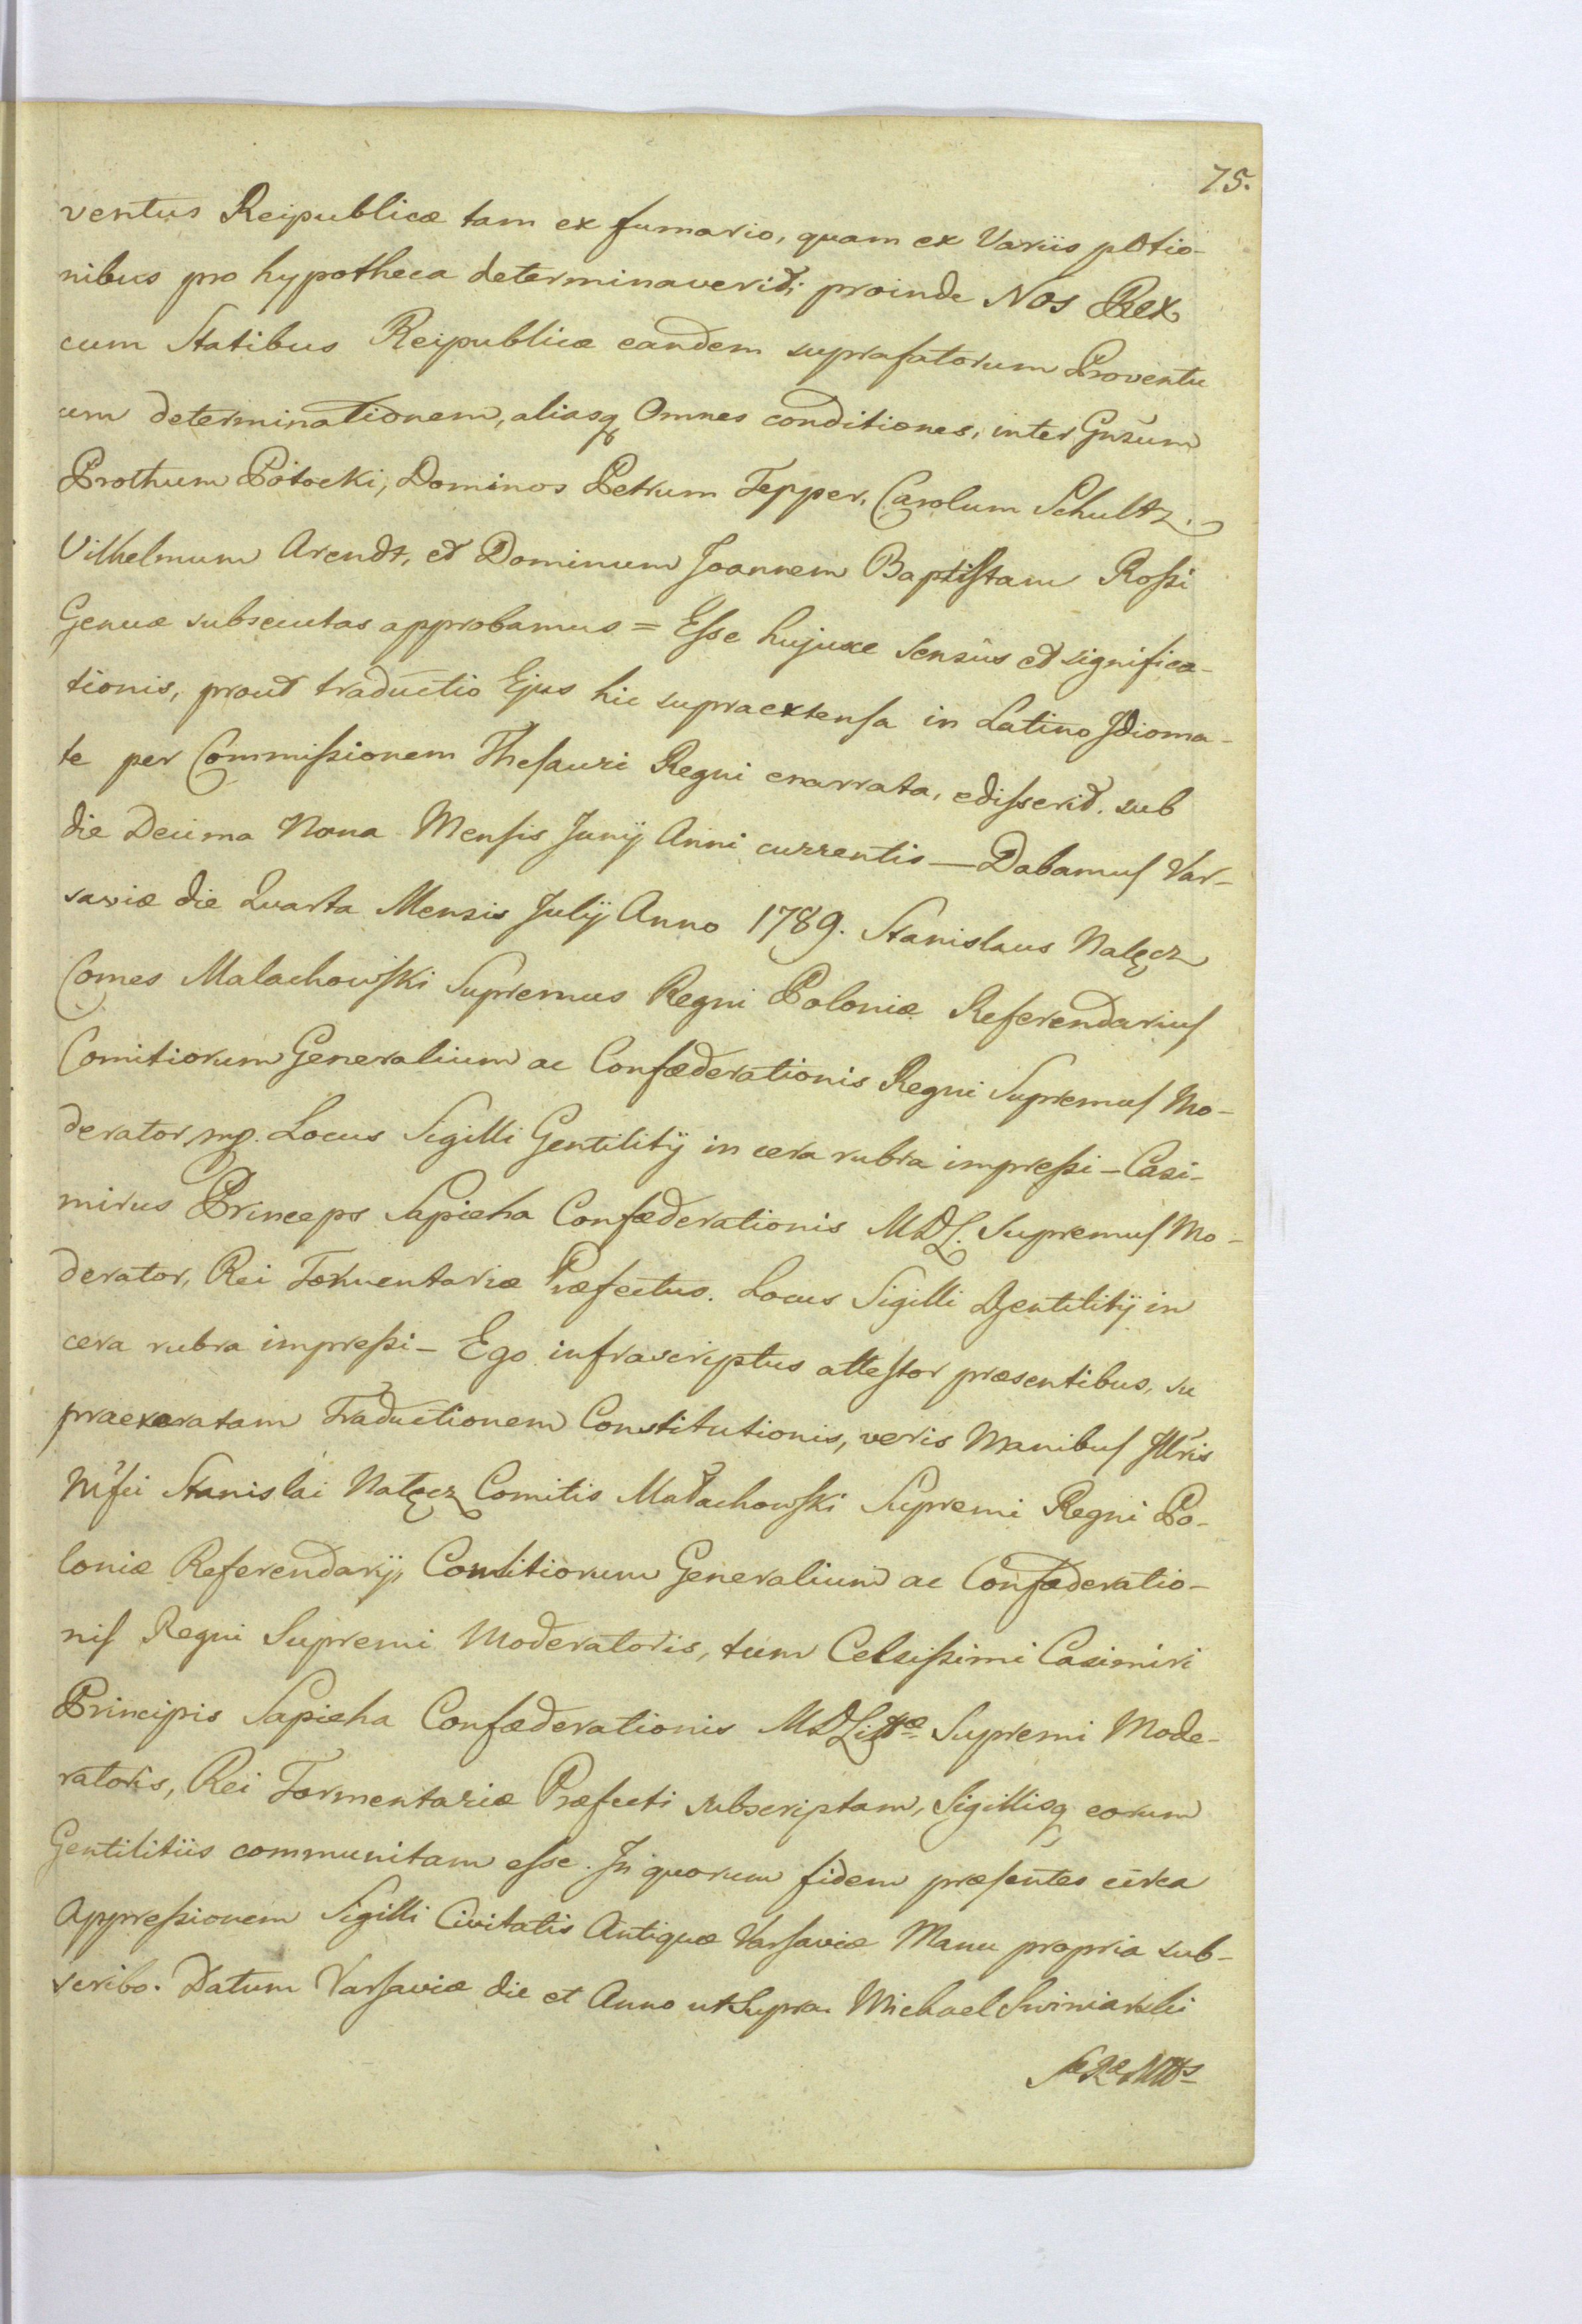 75.
ventus Reipublicæ tam ex fumario, quam ex Variis pltio-
nibus pro hypotheca determinaverit; proinde Nos Rex
cum Statibus Reipublicæ eandem suprafatorum Proventu
um determinationem, aliasq Omnes conditiones, inter Gnsum
Prothum Potocki, Dominos Petrum Tepper, Carolum Schultz.
Vilhelmum Arendt, et Dominum Joannem Baptistam Rossi
Genuæ subsecutas approbamus = Esse hujusce Sensûs et significa-
tionis, prout traductio Ejus hic supraextensa in Latino Idioma-
te per Commissionem Thesauri Regni enarrata, edisserit. sub
die Decima Nona Mensis Junÿ Anni currentis — Dabamus Var-
saviæ die Quarta Mensis Julÿ Anno 1789. Stanislaus Nalęcz
Comes Malachowski Supremus Regni Poloniæ Referendarius
Comitiorum Generalium ac Confæderationis Regni Supremus Mo-
derator mp. Locus Sigilli Gentilitÿ in cera rubra impressi - Casi-
mirus Princeps Sapieha Confæderationis MDL. Supremus Mo-
derator, Rei Tormentariæ Præfectus. Locus Sigilli Gentilitÿ in
cera rubra impressi - Ego infrascriptus attestor præsentibus, su
praexaratam Traductionem Constitutionis, veris Manibus Illris
Mfci Stanislai Nałęcz Comitis Małachowski Supremi Regni Po-
loniæ Referendarÿ, Comitiorum Generalium ac Confæderatio-
nis Regni Supremi Moderatoris, tum Celsissimi Casimiri
Principis Sapieha Confæderationis MDLittæ Supremi Mode-
ratoris, Rei Tormentariæ Præfecti subscriptam, Sigillisq eorum
Gentilitiis communitam esse. In quorum fidem præsentes circa
Appressionem Sigilli Civitatis Antiquæ Varsaviæ Manu propria sub-
scribo. Datum Varsaviæ die et Anno ut Supra. Michael Swiniarski